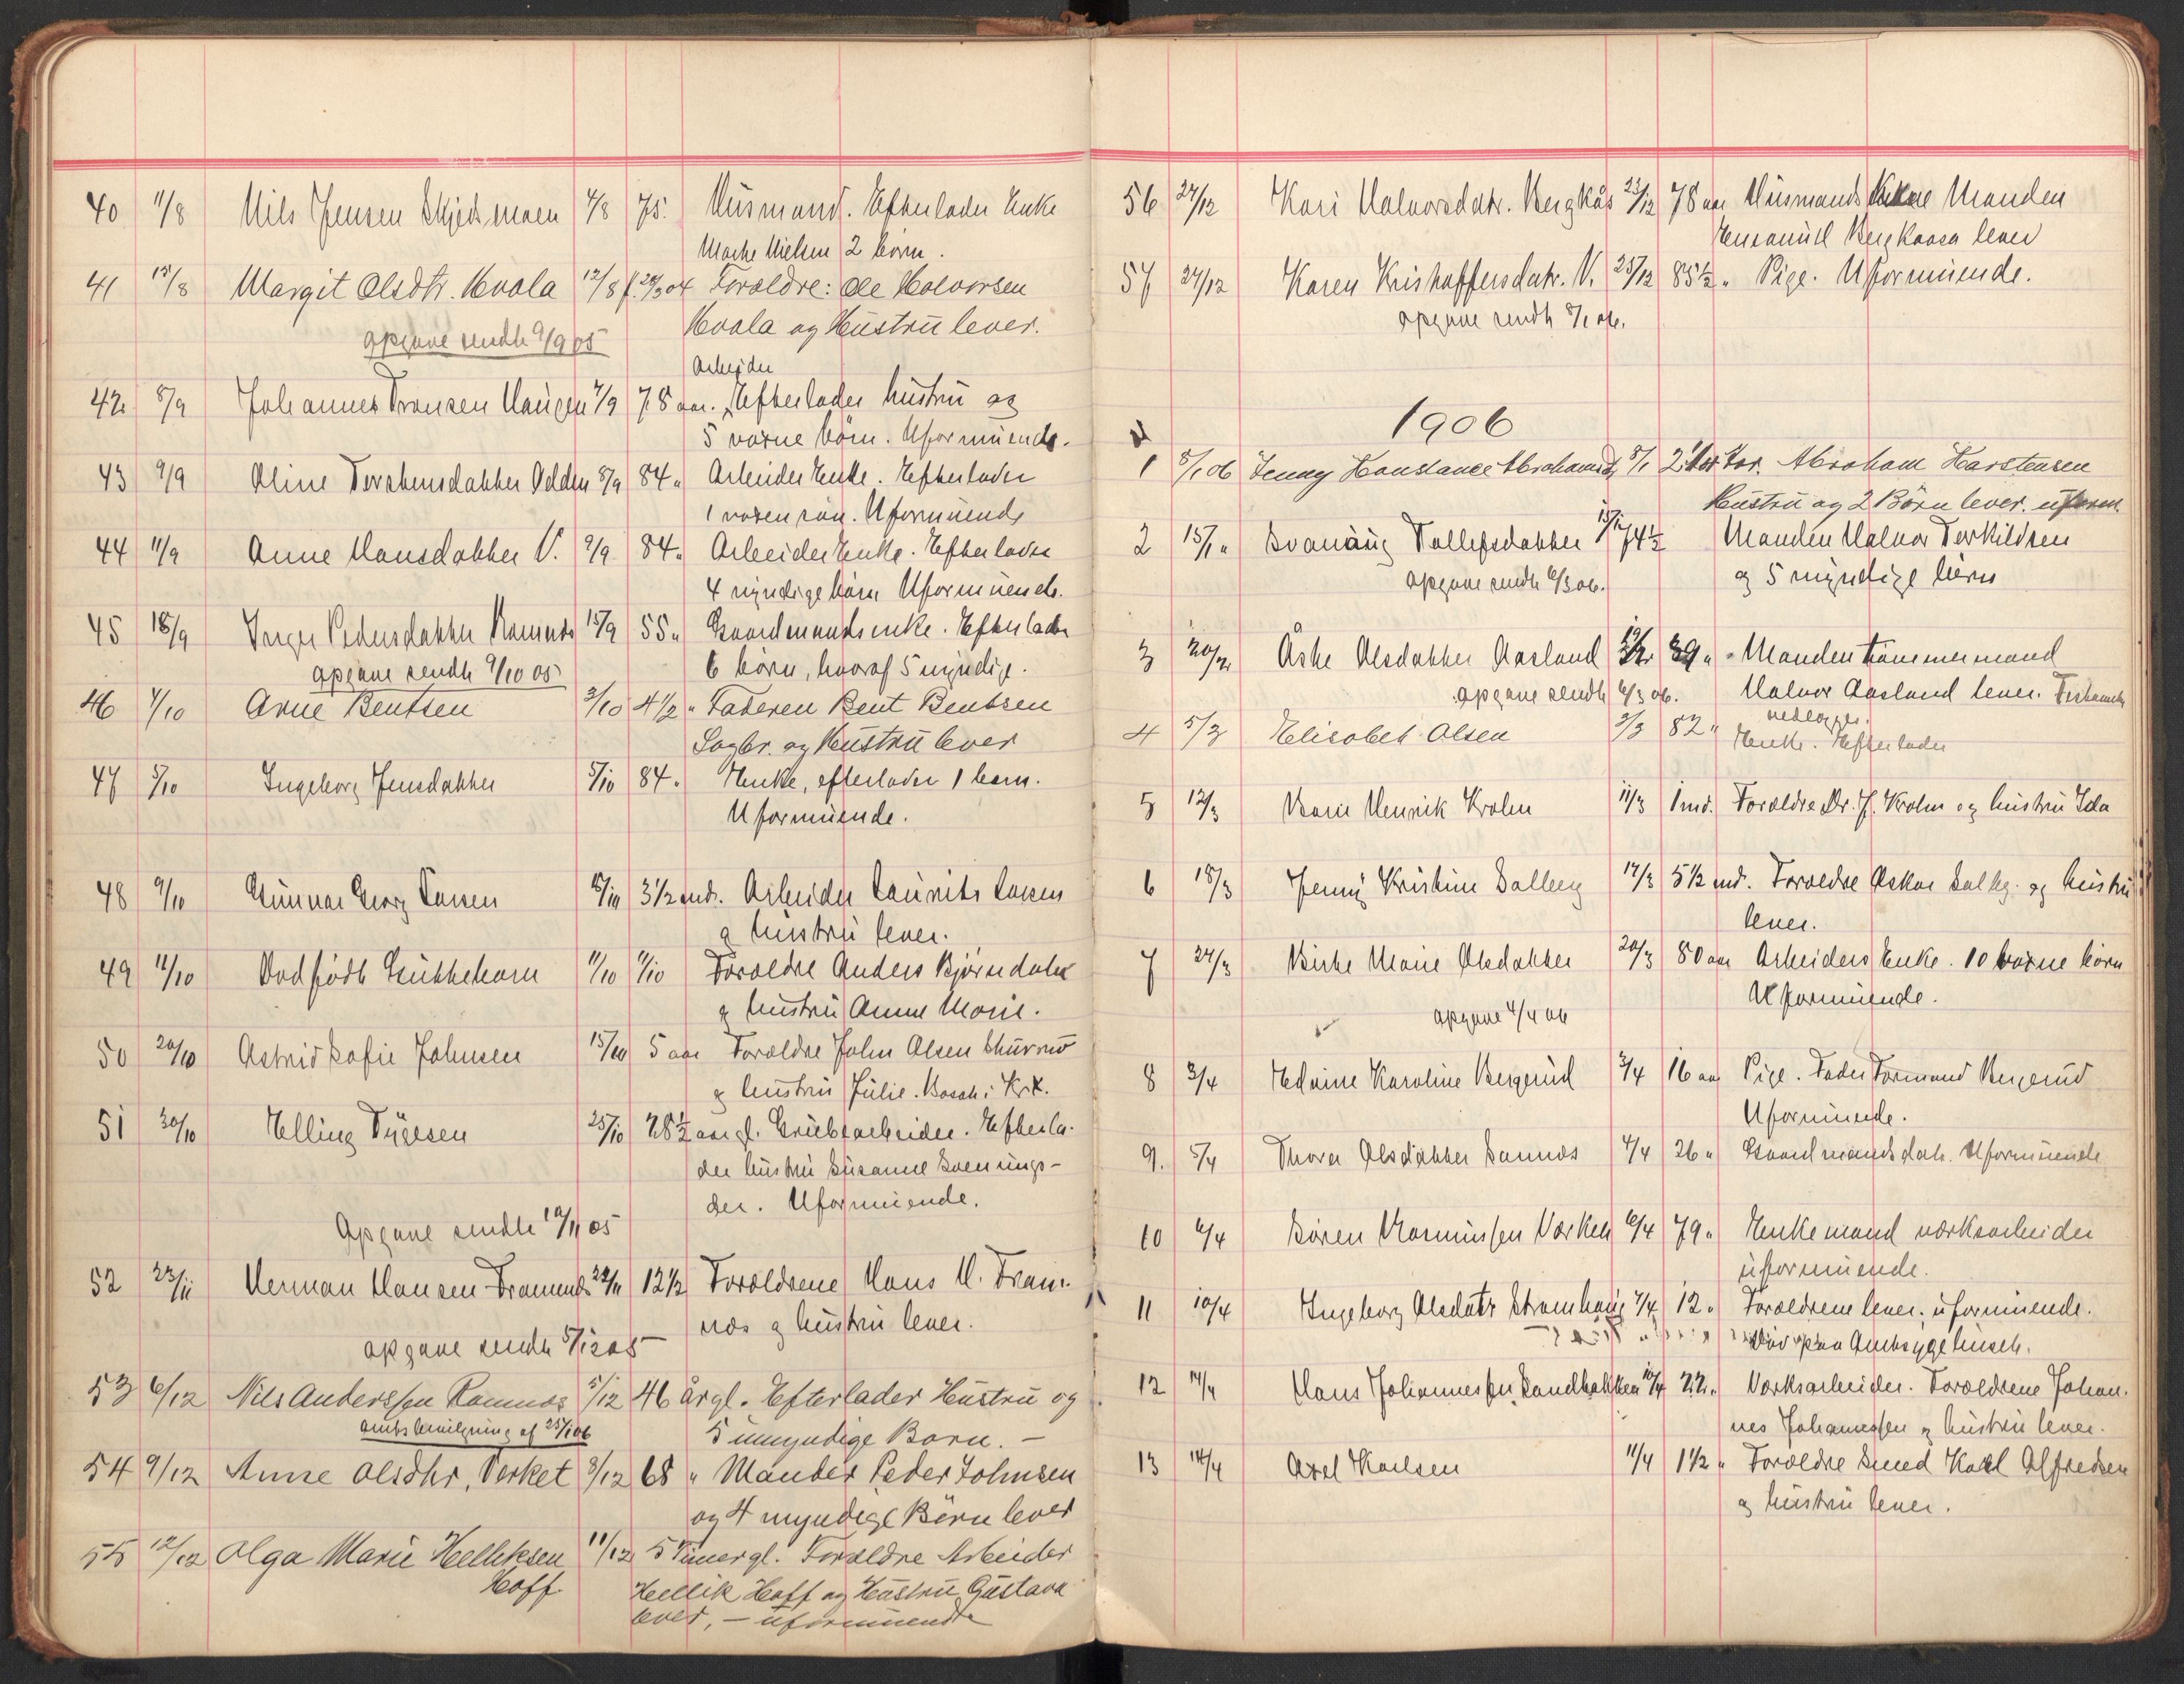 40 11/8 Nils Jensen Skjedsmoen 4/8 75. Husmand. Efterlader Enke
Marthe Nielsen 2 børn.
41 15/8 Margit Olsdtr. Kvala 12/8 f. 29/3 04 Forældre: Ole Halvorsen
Kvala og Hustru lever.
opgave sendt 9/9 05
Arbejder
42 8/9 Johannes Fransen Haugen 7/9 78 aar. Efterlader hustru og
5 voxne børn. Uformuende.
43 9/9 Oline Torstensdatter Odden 8/9 84 " Arbeider Enke. Efterlader
1 voxen søn. Uformuende
44 11/9 Anne Hansdatter V. 9/9 84 " Arbeider Enke. Efterlader
4 myndige børn Uformuende.
45 18/9 Inger Pedersdatter Ramnæs 15/9 55 " Gaardmandsenke. Efterlader
6 børn, hvoraf 5 myndige.
opgave sendt 9/10 05
46 4/10 Arne Bentsen 3/10 4 1/2 " Faderen Bent Bentsen
Sagbr. og Hustru lever
47 5/10 Ingeborg Jensdatter 5/10 84 " Enke, efterlader 1 barn.
Uformuende.
48 9/10 Gunnar Georg Larsen 8/10 3 1/2 md. Arbeider Laurits Larsen
og hustru lever.
49 11/10 Dødfødt Guttebarn 11/10 11/10 Forældre Anders Bjørndalen
og hustru Anne Marie.
50 20/10 Astrid Sofie Johnsen 15/10 5 aar Forældre John Olsen
og hustru Julie. Bosat i Krk.
51 30/10 Elling Tygesen 25/10 78 1/2 aar gl. Grubearbeider. Efterla-
der hustru Susanne Svennings-
der. Uformuende.
Opgave sendt 10/11 05
52 23/11 Herman Hansen Framnæs 22/11 12 1/2 Forældrene Hans H. Fram-
næs og hustru lever.
opgave sendt 5/12 05
53 6/12 Nils Anderssen Ramnæs 5/12 46 årgl. Efterlader Hustru og
5 umyndige Børn. –
Amtsbevilgning af 25/1 06
54 9/12 Anne Olsdtr, Verket 8/12 68 " Manden Peder Johnsen
og 4 myndige Børn lever
55 12/12 Olga Marie Helleksen 11/12 5 Timer gl. Forældre Arbeider
Hoff Hellik Hoff og Hustru Gustava
lever, – uformuende
56 27/12 Kari Halvorsdatr. Bergkås 23/12 78 aar Husmands Manden
Emanuel Bergkaasa lever
57 27/12 Karen Kristoffersdatr. V. 25/12 85 1/2 " Pige. Uformuende.
opgave sendt 8/1 06.
1906
1 8/1 06 Jenny Konstance Abrahamsd. 8/1 2 Abraham Karstensen
Hustru og 2 Børn lever. uform.
2 15/1 " Svanaug Tollefsdatter 15/1 74 1/2 Manden Halvor Terkildsen
og 5 myndige børn
opgave sendt 6/3 06.
3 20/2 Åste Olsdatter Aasland 19/2 39 " Manden tømmermand
Halvor Aasland lever.
opgave sendt 6/3 06.
4 5/3 Elisabet Olsen 3/3 82 " Enke. Efterlader
5 12/3 Henrik Krohn 11/3 1 md. Forældre Dr. J. Krohn og hustru Ida
6 18/3 Jenny Kristine Solberg 17/3 5 1/2 md. Forældre Oskar Solbg. og hustru
lever.
7 24/3 Birte Marie Olsdatter 20/3 80 aar Arbeiders Enke. 10 voxne børn
Uformuende.
opgave 4/4 06
8 3/4 Edvine Karoline Bergerud 2/4 16 aar Pige. Fader Formand Bergerud
Uformuende.
9. 5/4 Thora Olsdatter Sannæs 4/4 26 " Gaardmandsdatr. Uformuende
10 6/4 Søren Rasmussen Værket 6/4 79 " Enkemand værksarbeider
uformuende.
11 10/4 Ingeborg Olsdatr Stromhaug 7/4 12 " Forældrene lever. uformuende.
død paa Amtssygehuset.
12 14/4 Hans Johannessen Sandbakken 10/4 22 " Værksarbeider. Forældrene Johan-
nes Johannessen og hustru lever.
13 14/4 Axel Karlsen 11/4 1 1/2 " Forældre Smed Karl Alfredsen
og hustru lever.